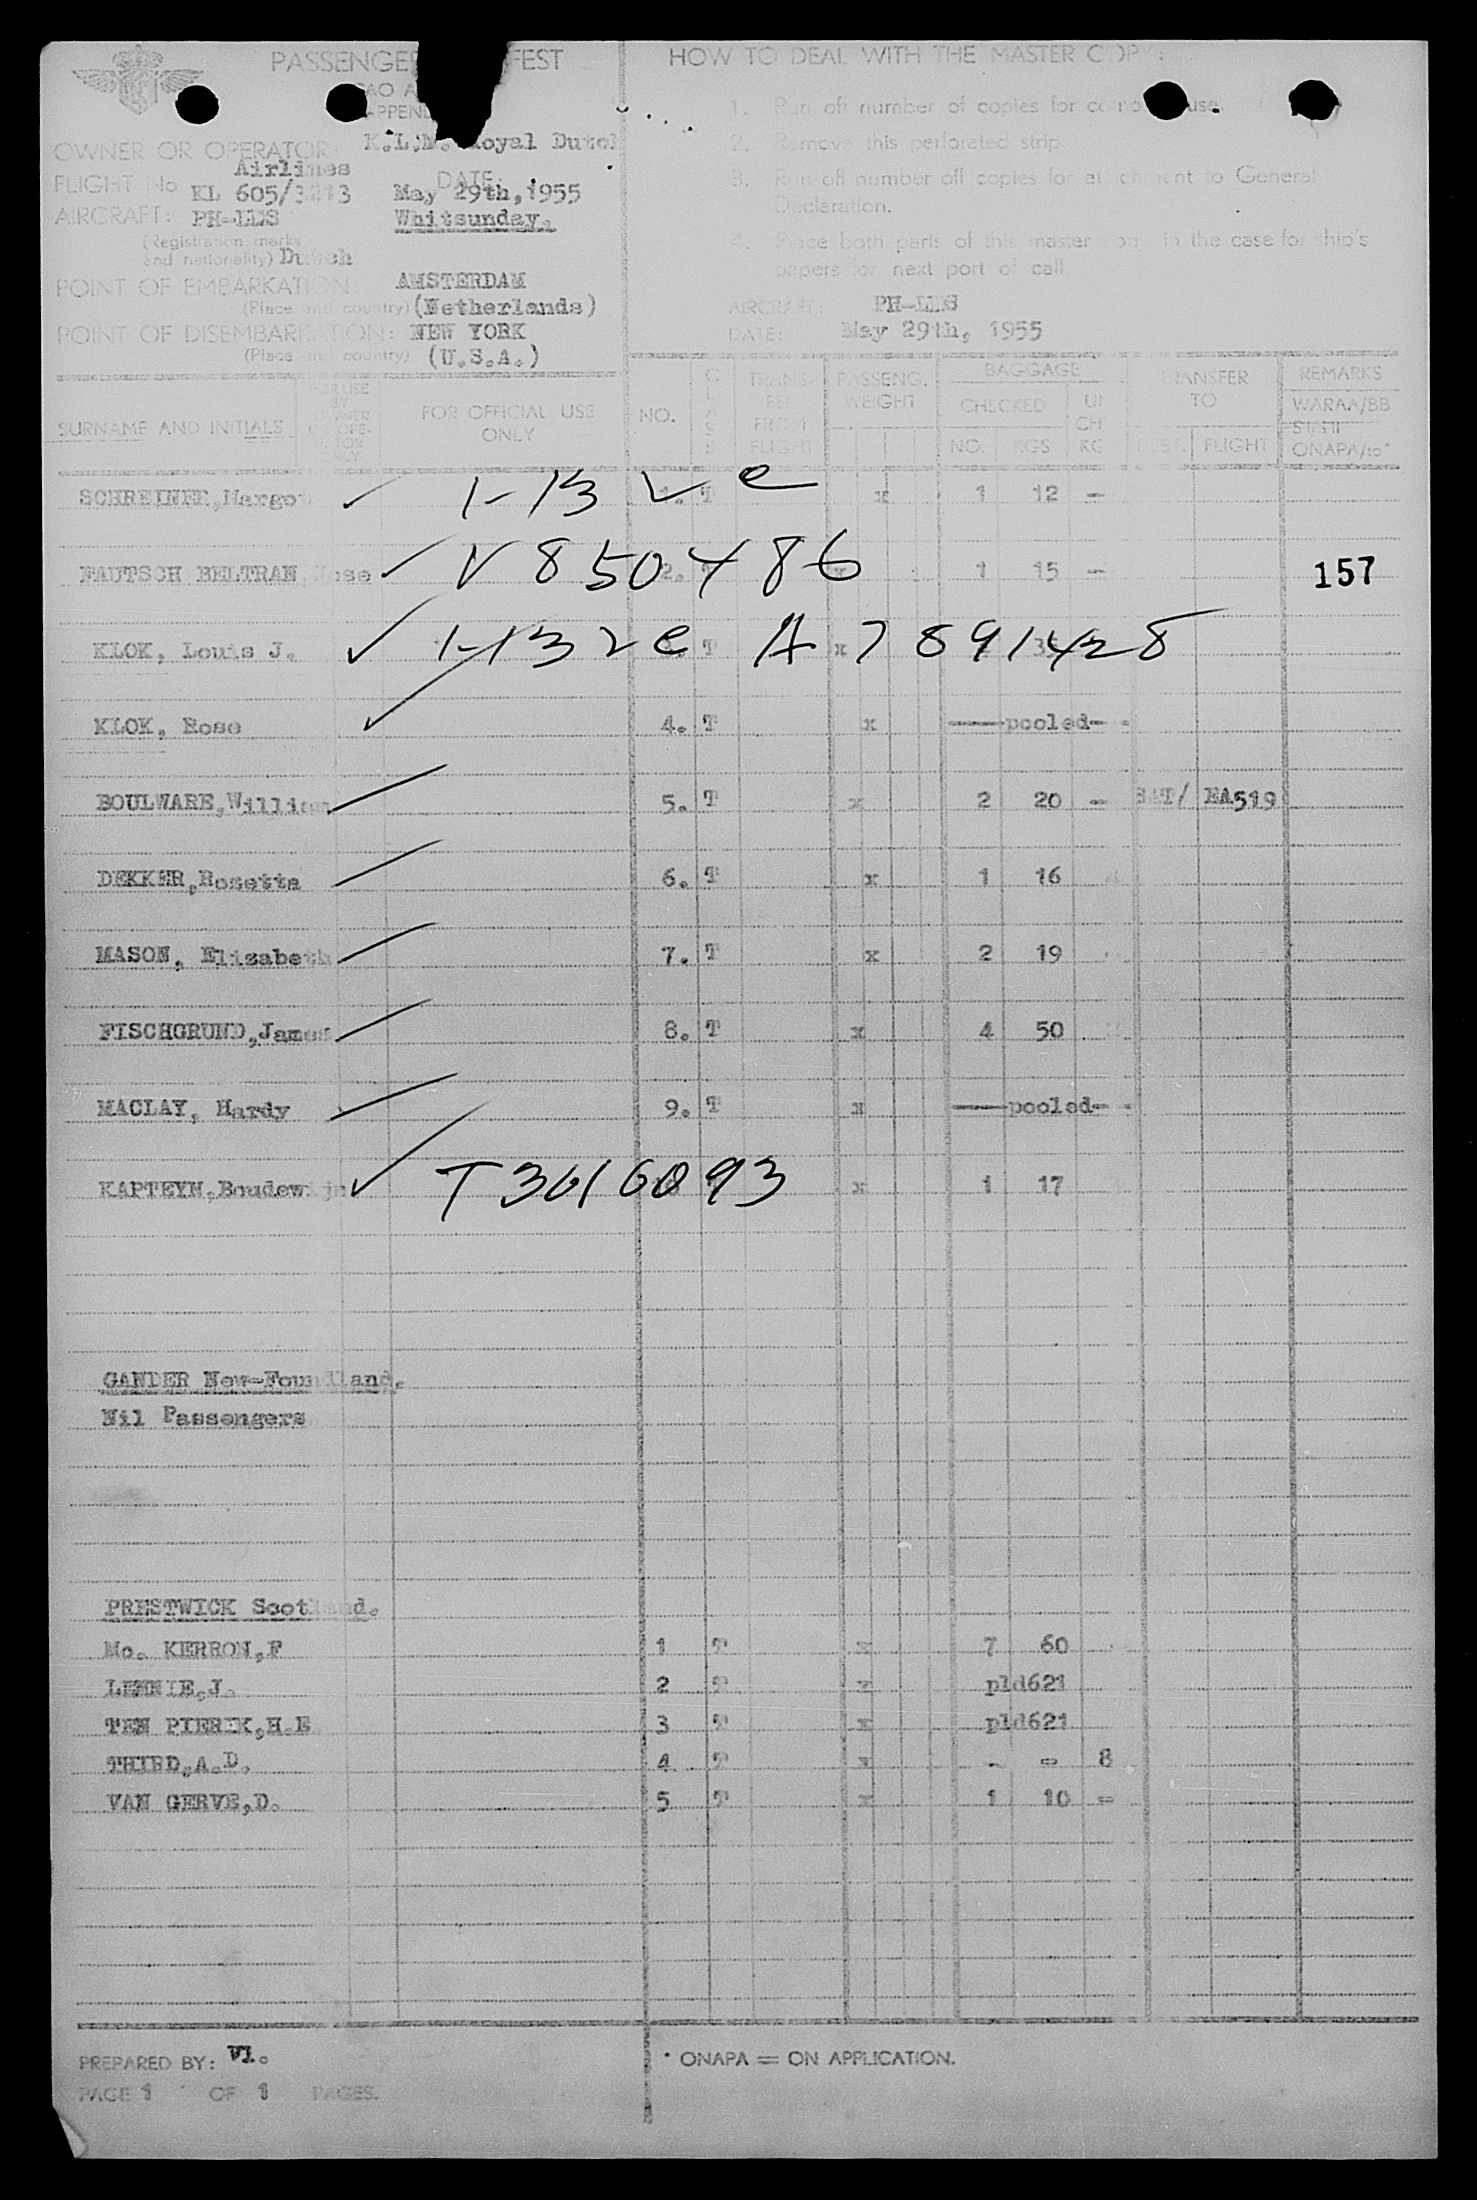 PASSENGER FEST
OWNER OR OPERATOR: K.L.M. Royal Dutch
Airlines
FLIGHT No KL 605/3213
DATE:
May 29th, 1955
AIRCRAFT: PH-LLS
Whitsunday.
(Registration marks
and nationality) Dutch
POINT OF EMBARKATION: AMSTERDAM
(Place and country) (Netherlands)
POINT OF DISEMBARKATION: NEW YORK
(Place and country) (U.S.A.)
HOW TO DEAL WITH THE MASTER COPY:
1. Run off number of copies for use.
2. Remove this perforated strip
3. Run off number off copies for attachment to General
Declaration.
4. Place both parts of this master in the case for ship's
papers for next port of call.
AIRCRAFT: PH-LLS
DATE: May 29th, 1955
SURNAME AND INITIALS
FOR OFFICIAL USE
ONLY
NO.
CLASS
TRANSFER
FROM
FLIGHT
PASSENG.
WEIGHT
BAGGAGE
CHECKED
NO. KGS
TRANSFER
TO
DEST. FLIGHT
REMARKS
WARAA/BB
ONAPA/to*
SCHREINER, Margot 1-132e 1. T x 1 12 -
FAUTSCH BELTRAN, Rose V850486 2. 1 15 - 157
KLOK, Louis J. 1-132e T x A7891428
KLOK, Rose 4. T x pooled -
BOULWARE, William 5. T x 2 20 - BAT/ EA519
DEKKER, Rosetta 6. T x 1 16
MASON, Elisabeth 7. T x 2 19
FISCHGRUND, James 8. T x 4 50
MACLAY, Hardy 9. T x pooled -
KAPTEYN, Boudewijn T3616093 x 1 17
GANDER New-Foundland.
Nil Passengers
PRESTWICK Scotland.
Mc. KERRON, F 1 T x 7 60
LENNIE, J. 2 T x pld621
TEN PIERIK, H.E 3 T x pld621
THIRD, A.D. 4 T x - - 8
VAN GERVE, D. 5 T x 1 10 -
PREPARED BY: Vl.
* ONAPA = ON APPLICATION.
PAGE 1 OF 1 PAGES.